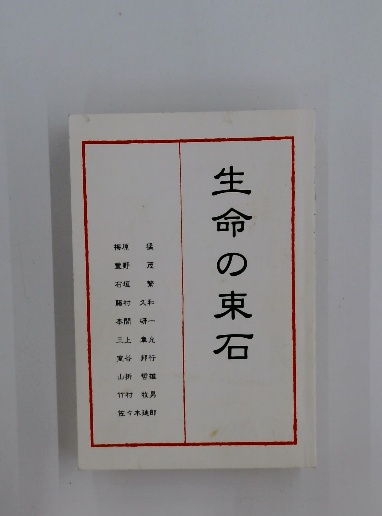 生命の束石
梅原 猛
萱野 茂
石垣 繁
藤村 久和
本間 研一
三上 章允
谷 邦行
山折 哲雄
竹村 牧男
佐々木 郎